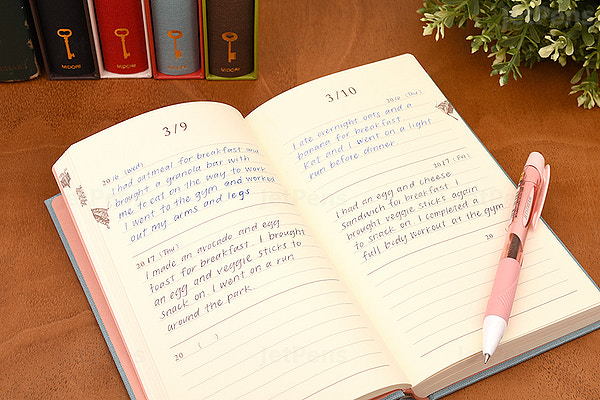 MIDORI
MIDORI
MIDORI
MIDORI
3/9
2016 (Wed)
I had oatmeal for breakfast and
brought a granola bar with
me to eat on the way to work
I went to the gym and worked
out my arms and legs
2017 (Thu)
I made an avocado and egg
toast for breakfast. I brought
an egg and veggie sticks to
snack on. I went on a run
around the park.
20 ( )
3/10
2016 (Thu)
I ate overnight oats and a
banana for breakfast.
Kat and I went on a light
run before dinner.
2017 (Fri)
I had an egg and cheese
sandwich for breakfast I
brought veggie sticks again
to snack on. I completed a
full body workout at the gym
20
JetPens